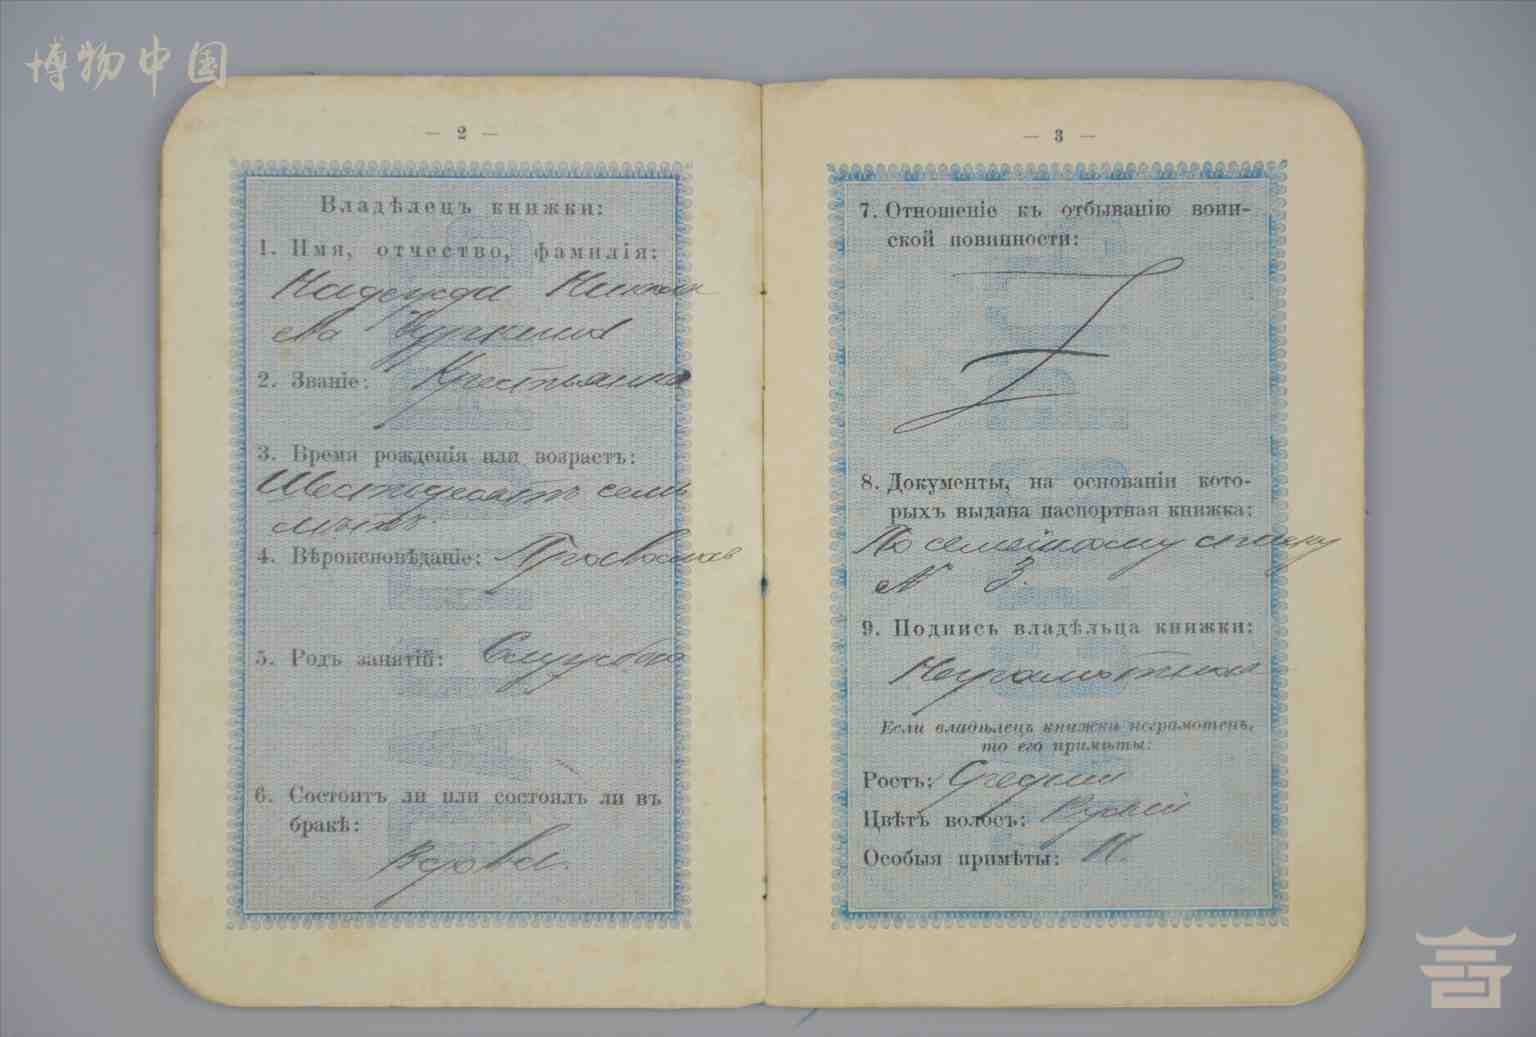 博物中国
— 2 —
Владѣлецъ книжки:
1. Имя, отчество, фамилія:
Надежда
2. Званіе: Крестьянка
3. Время рожденія или возрастъ:
Шестьдесятъ семь
лѣтъ.
4. Вѣроисповѣданіе:
5. Родъ занятій:
6. Состоитъ ли или состоялъ ли въ
бракѣ:
Вдова.
— 3 —
7. Отношеніе къ отбыванію воин-
ской повинности:
8. Документы, на основаніи кото-
рыхъ выдана паспортная книжка:
По семейному списку
№ 3.
9. Подпись владѣльца книжки:
Неграмотная
Если владѣлецъ книжки неграмотенъ,
то его примѣты:
Ростъ: Средній
Цвѣтъ волосъ: Русый
Особыя примѣты: Н.